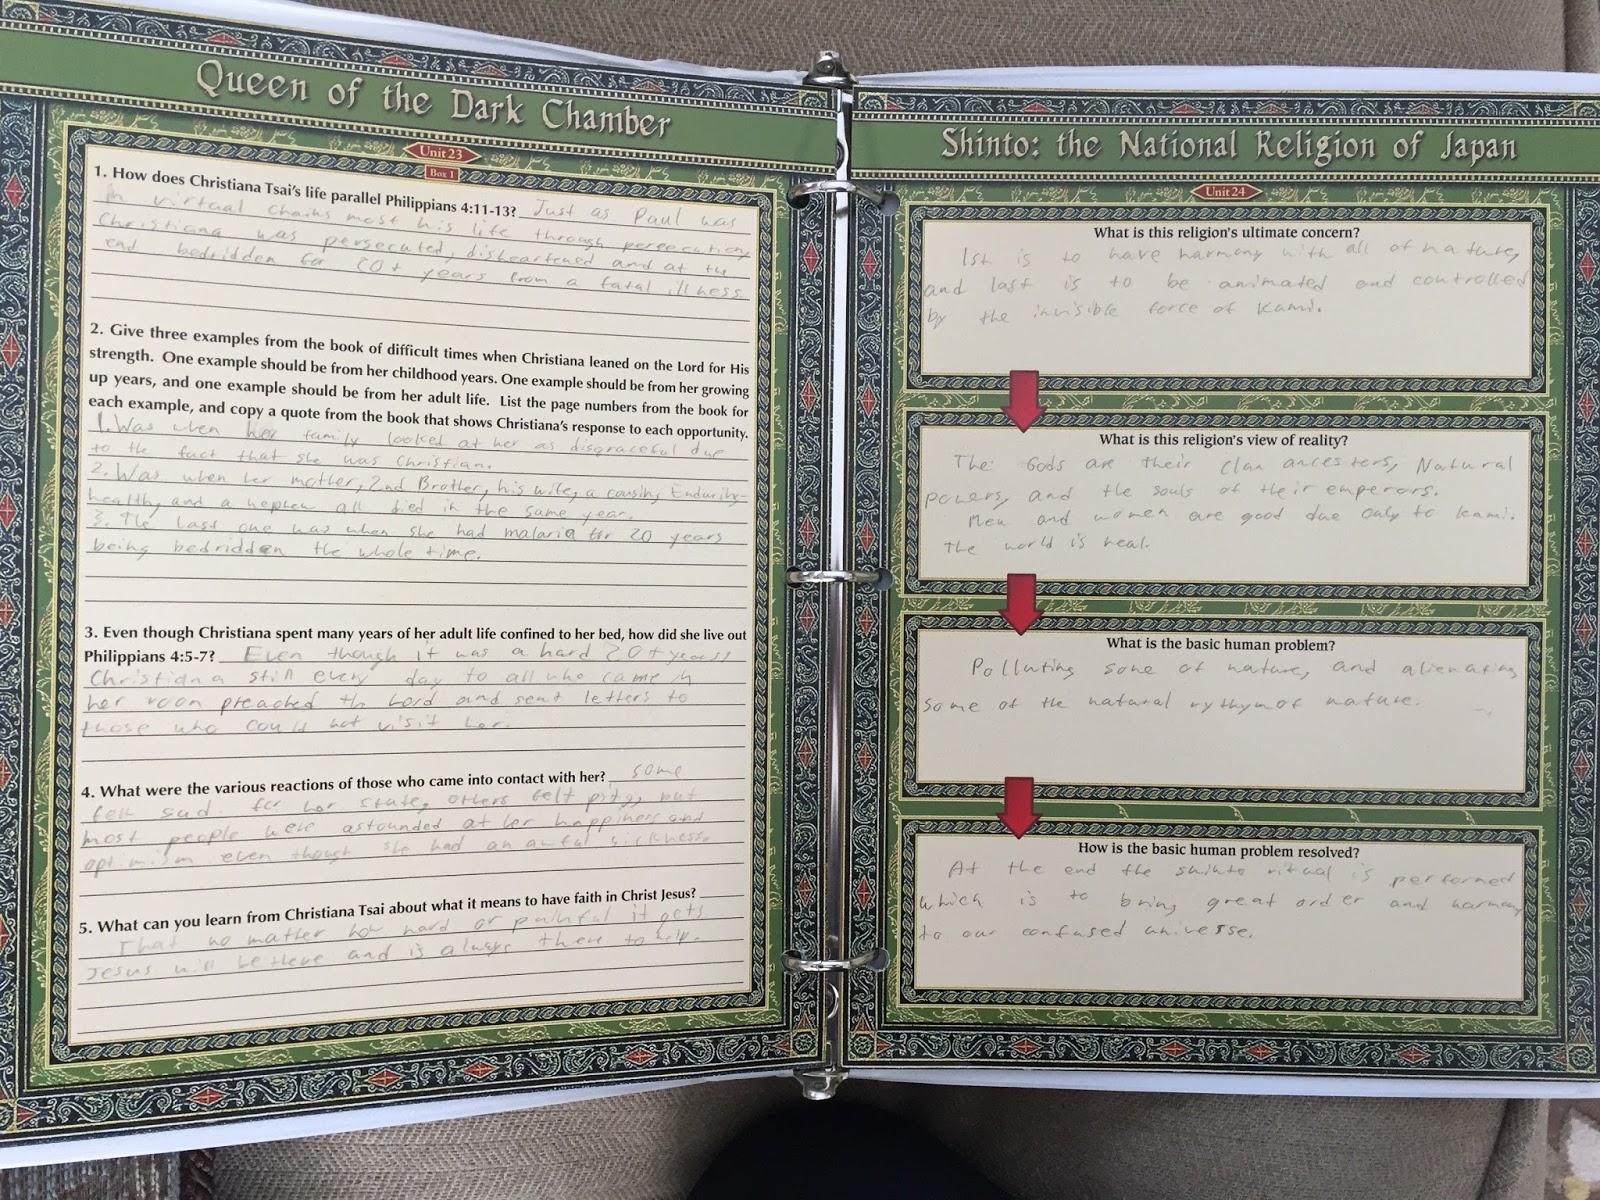 Queen of the Dark Chamber
Unit 23
Box 1
1. How does Christiana Tsai's life parallel Philippians 4:11-13? Just as Paul was
in virtual chains most his life through persecution,
Christiana was persecuted, disheartened and at the
end bedridden for 20+ years from a fatal illness.
2. Give three examples from the book of difficult times when Christiana leaned on the Lord for His
strength. One example should be from her childhood years. One example should be from her growing
up years, and one example should be from her adult life. List the page numbers from the book for
each example, and copy a quote from the book that shows Christiana's response to each opportunity.
1. Was when her family looked at her as disgraceful due
to the fact that she was Christian.
2. Was when her mother, 2nd Brother, his wife, a cousin,
health, and a nephew all died in the same year.
3. The last one was when she had malaria for 20 years
being bedridden the whole time.
3. Even though Christiana spent many years of her adult life confined to her bed, how did she live out
Philippians 4:5-7? Even though it was a hard 20+ years
Christiana still every day to all who came in
her room preached the Lord and sent letters to
those who could not visit her.
4. What were the various reactions of those who came into contact with her? some
felt sad for her state, others felt pity, but
most people were astounded at her happiness and
optimism even though she had an awful sickness.
5. What can you learn from Christiana Tsai about what it means to have faith in Christ Jesus?
That no matter how hard or painful it gets
Jesus will be there and is always there to help.
Shinto: the National Religion of Japan
Unit 24
What is this religion's ultimate concern?
1st is to have harmony with all of nature,
and last is to be animated and controlled
by the invisible force of Kami.
What is this religion's view of reality?
The Gods are their clan ancestors, Natural
powers, and the souls of their emperors.
Men and women are good due only to kami.
The world is real.
What is the basic human problem?
Polluting some of nature, and alienating
some of the natural rythym of nature.
How is the basic human problem resolved?
At the end the shinto ritual is performed
which is to bring great order and harmony
to our confused universe.